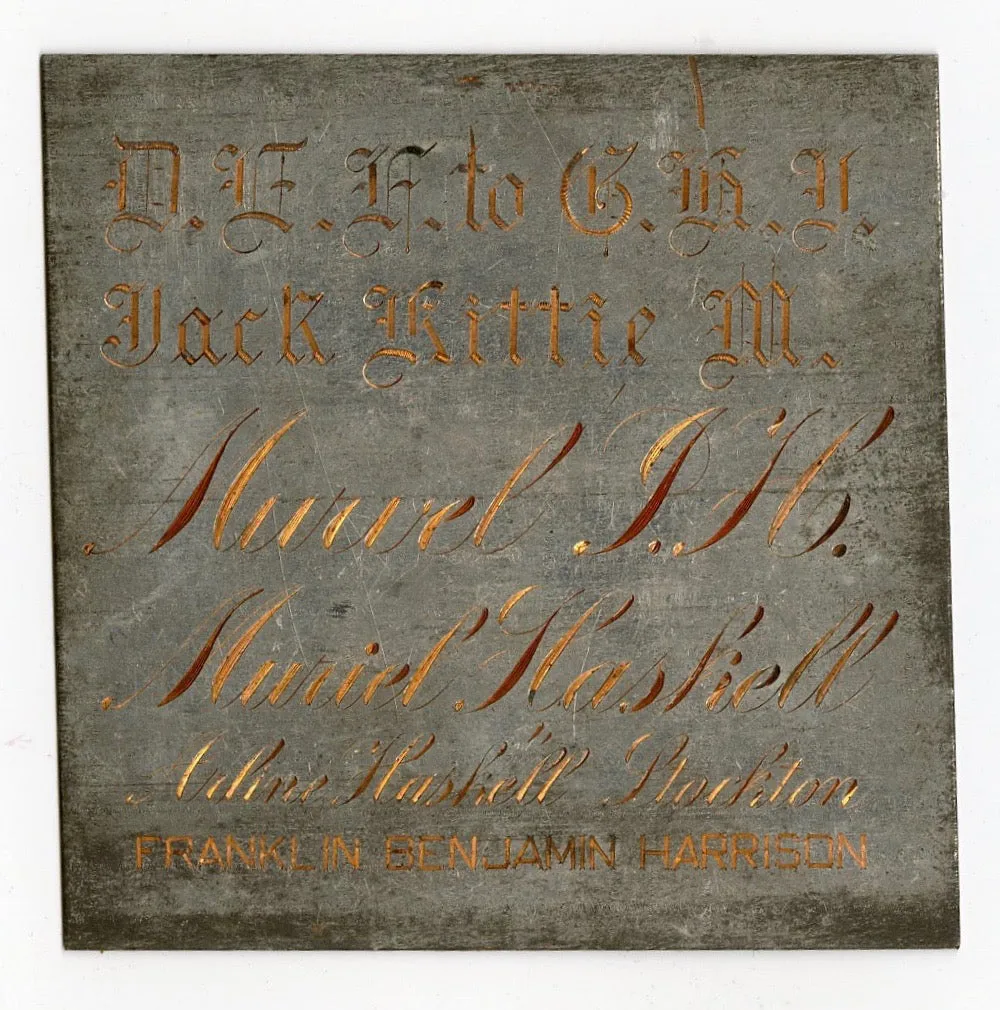 D.E.F. to G.H.I.
Jack Kittie M.
Murvel I. H.
Muriel Haskell
Arline Haskell Stockton
FRANKLIN BENJAMIN HARRISON